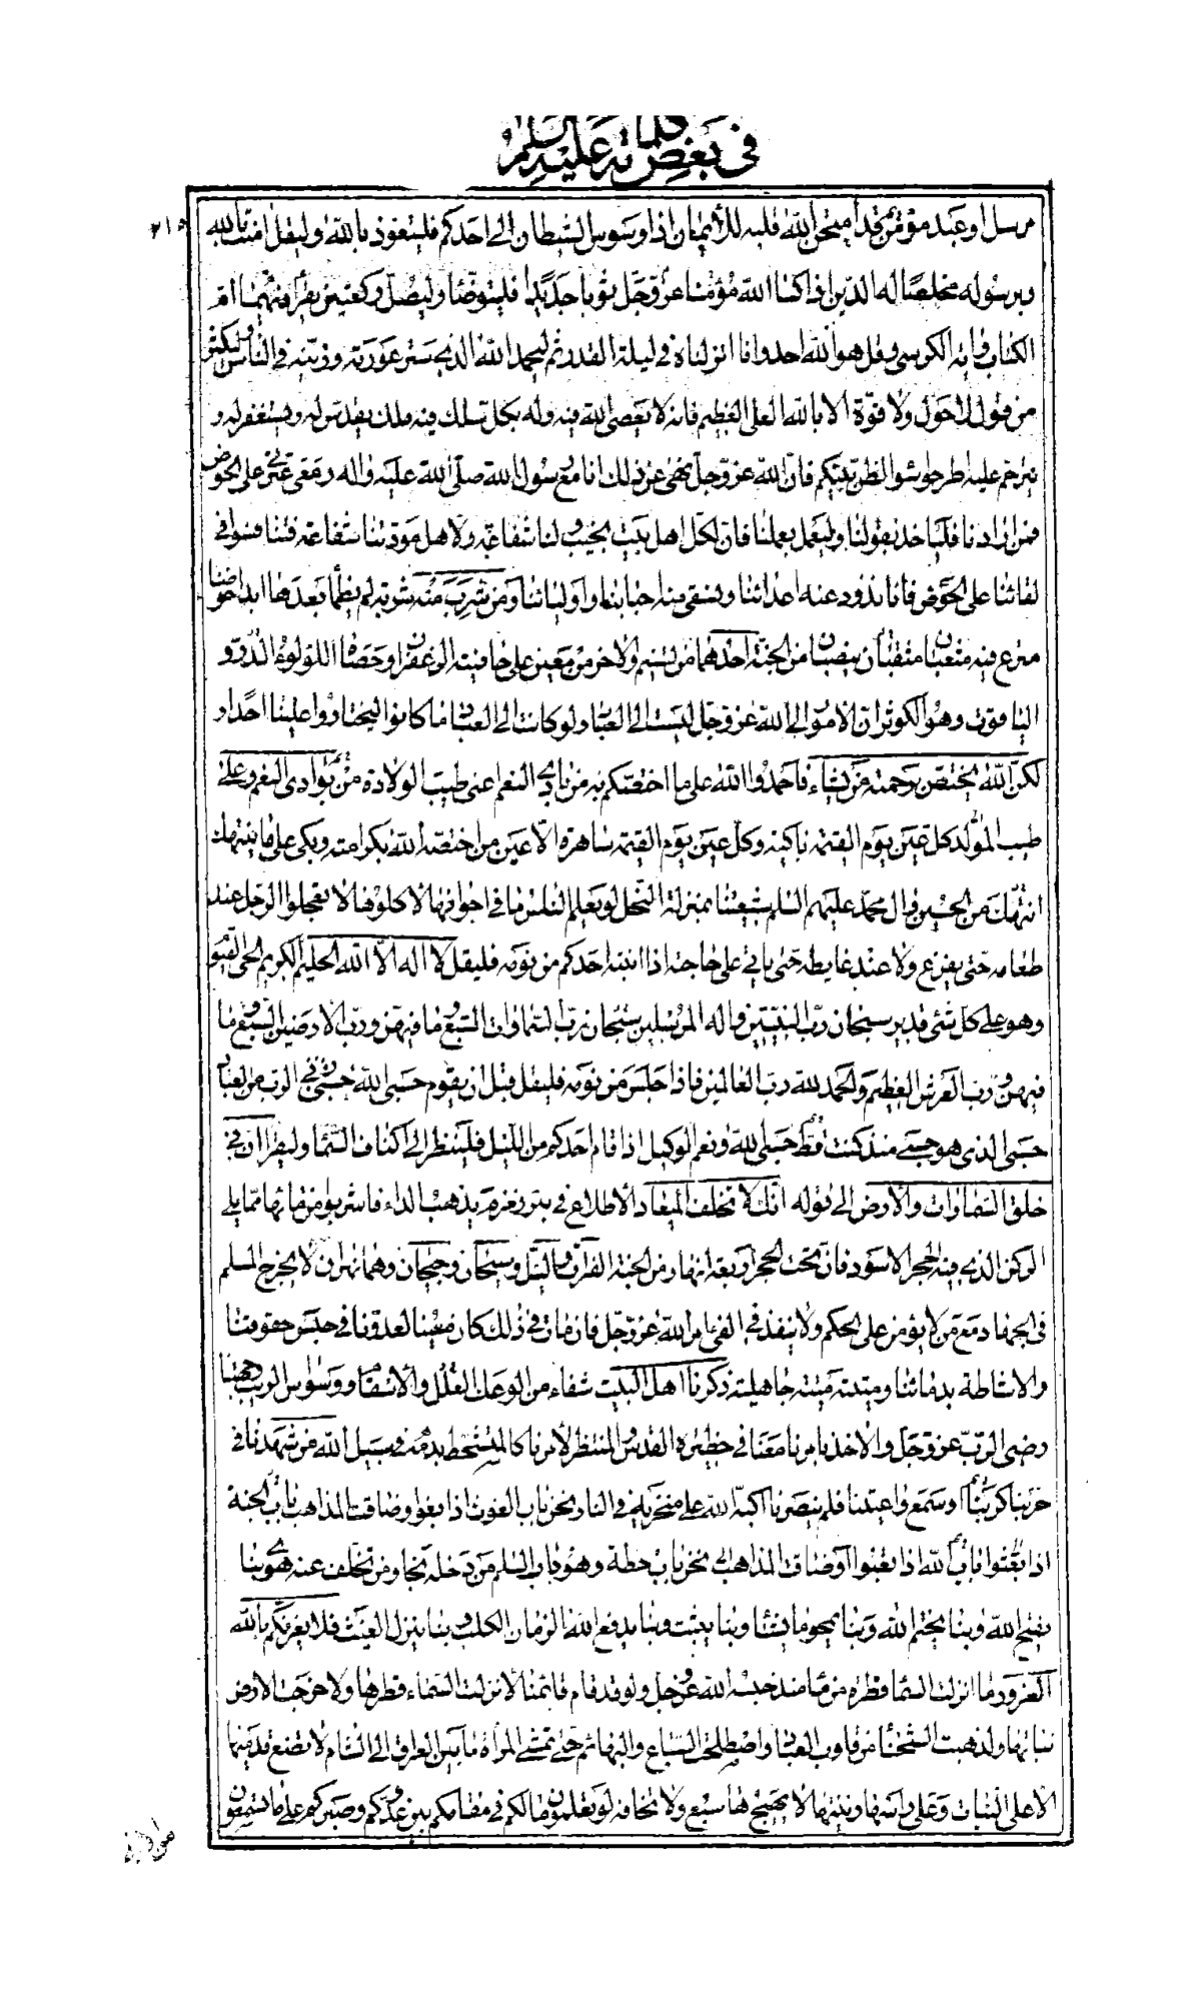 في بعض كلماته عليه السلام
٢١٥
مرسل او عبد مؤمن قد امتحن الله قلبه للأيمان اذا وسوس الشيطان الى احدكم فليتعوذ بالله وليقل امنت بالله
وبرسوله مخلصا له الدين اذا كسا الله مؤمنا عز وجل ثوبا جديدا فليتوضا وليصل ركعتين يقرأ فيهما ام
الكتاب واية الكرسي وقل هو الله احد وانا انزلناه في ليلة القدر ثم ليحمد الله الذي ستر عورته وزينه في الناس وليكثر
من قول لا حول ولا قوة الا بالله العلي العظيم فانه لا يعصى الله فيه وله بكل سلك فيه ملك يقدس له ويستغفر له و
يترحم عليه اطرحوا سوء الظن بينكم فان الله عز وجل نهى عن ذلك انا مع رسول الله صلى الله عليه واله ومعي عترتي على الحوض
فمن ارادنا فلياخذ بقولنا وليعمل بعملنا فان لكل اهل بيت نجيب ولنا شفاعة ولاهل مودتنا شفاعة فتنافسوا في
لقائنا على الحوض فانا نذود عنه اعدائنا ونسقي منه احبائنا واوليائنا ومن شرب منه شربة لم يظمأ بعدها ابدا حوضنا
مترع فيه مثعبان ينصبان من الجنة احدهما من تسنيم والاخر من معين على حافيته الزعفران وحصاه اللؤلؤ والدر و
الياقوت وهو الكوثر ان الامور الى الله عز وجل ليست الى العباد ولو كانت الى العباد ما كانوا ليختاروا علينا احدا و
لكن الله يختص برحمته من يشاء فاحمدوا الله على ما اختصكم به من بادي النعم اعني طيب الولادة من بوادي النعم وعلى
طيب المولد كل عين يوم القيمة باكية وكل عين يوم القيمة ساهرة الا عين من اختصه الله بكرامته وبكى على ما ينتهك
من الحسين وال محمد عليهم السلم شيعتنا بمنزلة النحل لو يعلم الناس ما في اجوافها لاكلوها لا تعجلوا الرجل عند
طعامه حتى يفرغ ولا عند غايطه حتى ياتي على حاجته اذا انتبه احدكم من نومه فليقل لا اله الا الله الحليم الكريم الحي القيوم
وهو على كل شئ قدير سبحان رب النبيين واله المرسلين سبحان رب السماوات السبع وما فيهن ورب الارضين السبع وما
فيهن ورب العرش العظيم والحمد لله رب العالمين فاذا جلس من نومه فليقل قبل ان يقوم حسبي الله حسبي الرب من العباد
حسبي الذي هو حسبي منذ كنت قط حسبي الله ونعم الوكيل اذا قام احدكم من الليل فلينظر الى اكناف السماء وليقرأ ان في
خلق السماوات والأرض الى قوله انك لا تخلف الميعاد الاطلاع في بئر زمزم يذهب الداء فاشربوا من مائها مما يلي
الركن الذي فيه الحجر الاسود فان تحت الحجر اربعة انهار من الجنة الفرات والنيل وسيحان وجيحان وهما نهران لا يخرج المسلم
في الجهاد مع من لا يؤمن على الحكم ولا ينفذ في الفئ امر الله عز وجل فان مات في ذلك كان معينا لعدونا في حبس حقوقنا
والاشاطة بدمائنا وميتته ميتة جاهلية ذكرنا اهل البيت شفاء من الوعك والعلل والأسقام ووسواس الريب وحبنا
رضى الرب عز وجل والاخذ بامرنا معنا في حظيرة القدس والمنتظر لأمرنا كالمتشحط بدمه في سبيل الله من شهدنا في
حربنا او سمع واعيتنا فلم ينصرنا اكبه الله على منخريه في النار ونحن باب الغوث اذا بغوا وضاقت المذاهب باب الجنة
وضاقت المذاهب نحن باب حطة وهو باب السلم من دخله نجا ومن تخلف عنه هوى بنا
يفتح الله وبنا يختم الله وبنا يمحو ما يشاء وبنا يثبت وبنا يدفع الله الزمان الكلب وبنا ينزل الغيث فلا يغرنكم بالله
الغرور ما انزلت السماء قطرة من ماء منذ حبسه الله عز وجل ولو قد قام قائمنا لانزلت السماء قطرها ولاخرجت الارض
نباتها ولذهبت الشحناء من قلوب العباد واصطلحت السباع والبهائم حتى تمشي المرأة ما بين العراق الى الشام لا تضع قدميها
الا على النبات وعلى رأسها زينتها لا يهيجها سبع ولا تخافه لو تعلمون ما لكم في مقامكم بين عدوكم وصبركم على ما تسمعون